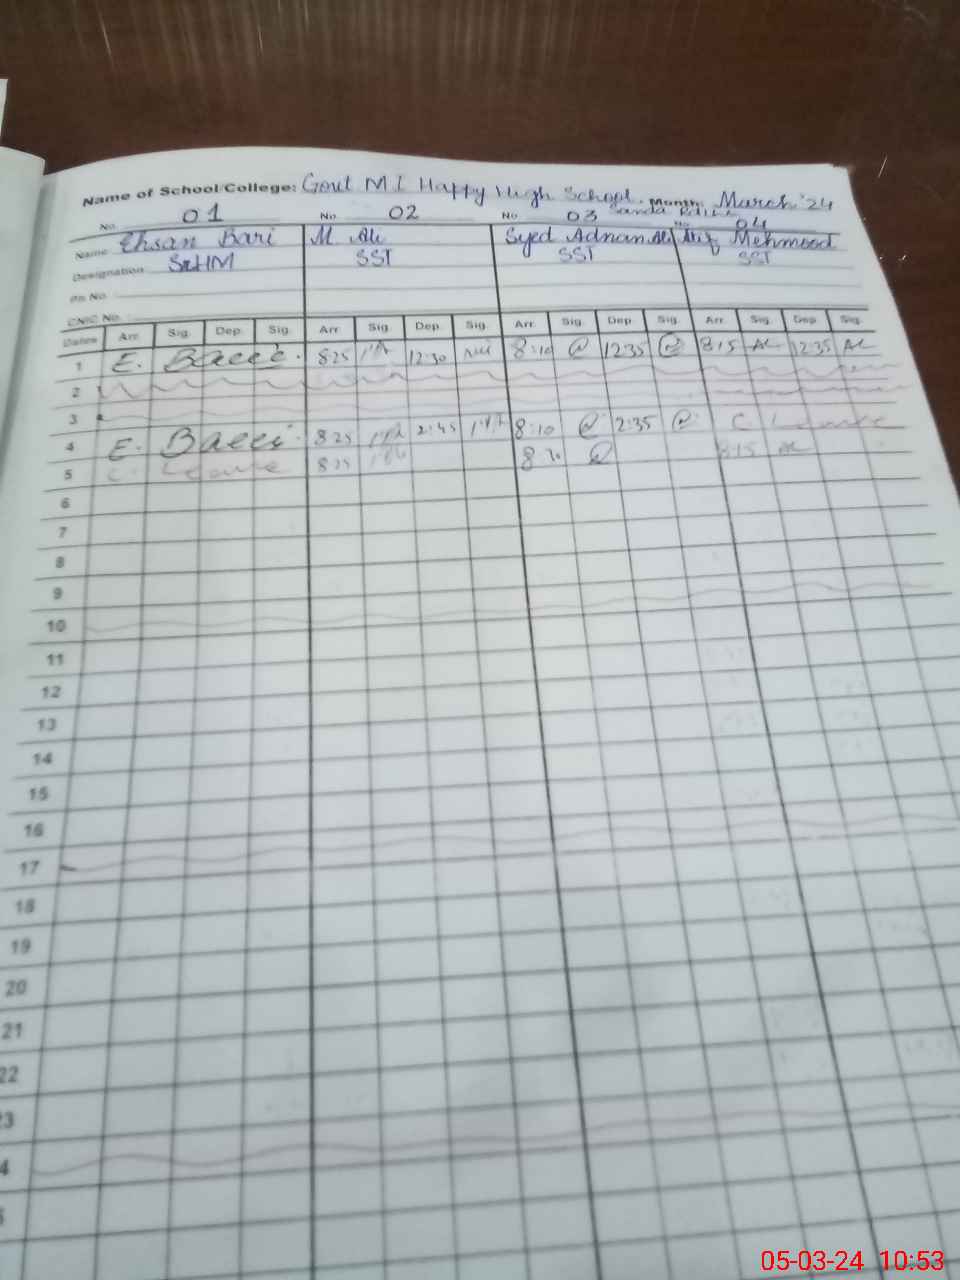 Name of School/College: Govt M I Happy High School. Month: March '24
Sanda
No. 01 No. 02 No. 03 No. 04
Name Ehsan Bari M. Ali Syed Adnan Ali Atif Mehmood
Designation SrHM SST SST SST
P# No.
CNIC No.
Dates Arr. Sig. Dep. Sig. Arr. Sig. Dep. Sig. Arr. Sig. Dep. Sig. Arr. Sig. Dep. Sig.
1 E. 8:25 12:30 8:10 @ 12:35 @ 8:15 12:35
2
3
4 E. 8:25 2:45 8:10 @ 2:35 @ C. Leave
5 C. Leave 8:25 @ 8:15
6
7
8
9
10
11
12
13
14
15
16
17
18
19
20
21
22
23
05-03-24 10:53